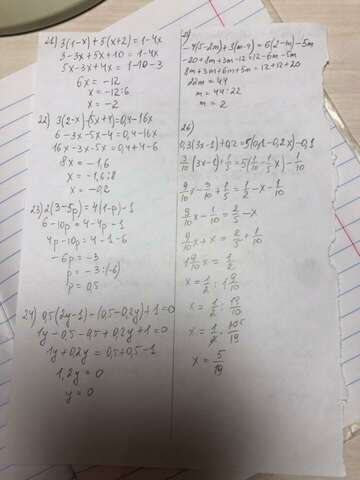 21) 3(1-x)+5(x+2)=1-4x
3-3x+5x+10=1-4x
5x-3x+4x=1-10-3
6x=-12
x=-12:6
x=-2
22) 3(2-x)-(5x+4)=0,4-16x
6-3x-5x-4=0,4-16x
16x-3x-5x=0,4+4-6
8x=-1,6
x=-1,6:8
x=-0,2
23) 2(3-5p)=4(1-p)-1
6-10p=4-4p-1
4p-10p=4-1-6
-6p=-3
p=-3:(-6)
p=0,5
24) 0,5(2y-1)-(0,5-0,2y)+1=0
1y-0,5-0,5+0,2y+1=0
1y+0,2y=0,5+0,5-1
1,2y=0
y=0
-4(5-2m)+3(m-4)=6(2-m)-5m
-20+8m+3m-12=12-6m-5m
8m+3m+6m+5m=12+12+20
22m=44
m=44:22
m=2
26
0,3(3x-1)+0,2=5(0,1-0,2x)-0,1
3/10(3x-1)+1/5=5(1/10-1/5x)-1/10
9/10x-3/10+1/5=1/2-x-1/10
9/10x-1/10=2/5-x
9/10x+x=2/5+1/10
1 9/10x=1/2
x=1/2:1 9/10
x=1/2:19/10
x=5/19